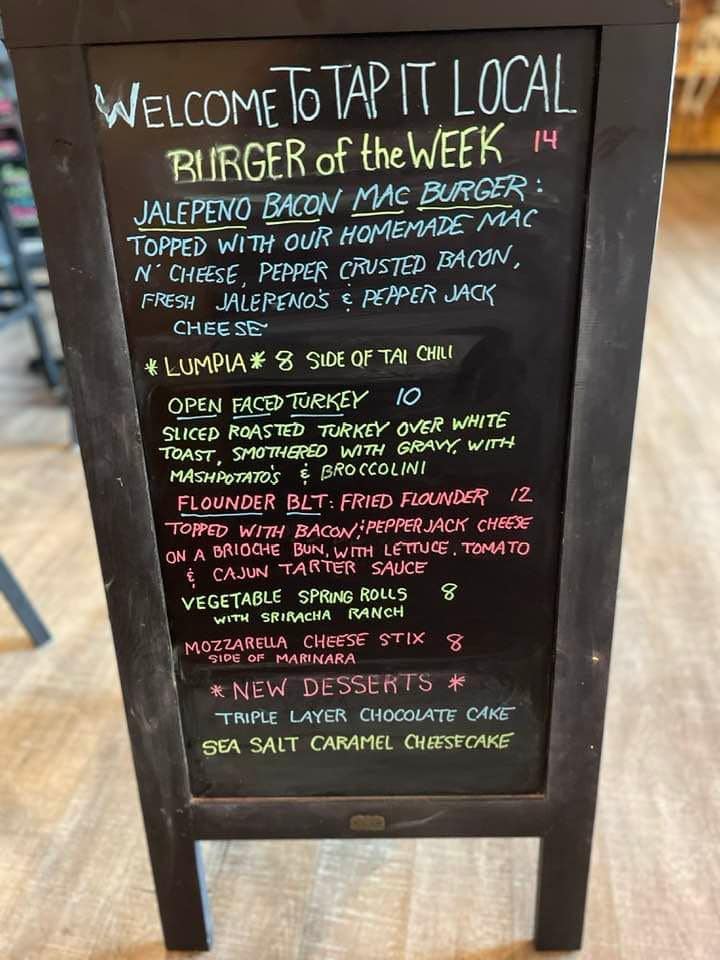 WELCOME TO TAP IT LOCAL
BURGER of the WEEK 14
JALEPENO BACON MAC BURGER:
TOPPED WITH OUR HOMEMADE MAC
N' CHEESE, PEPPER CRUSTED BACON,
FRESH JALEPENO'S & PEPPER JACK
CHEESE
*LUMPIA* 8 SIDE OF TAI CHILI
OPEN FACED TURKEY 10
SLICED ROASTED TURKEY OVER WHITE
TOAST, SMOTHERED WITH GRAVY, WITH
MASHPOTATO'S & BROCCOLINI
FLOUNDER BLT: FRIED FLOUNDER 12
TOPPED WITH BACON, PEPPERJACK CHEESE
ON A BRIOCHE BUN, WITH LETTUCE, TOMATO
& CAJUN TARTER SAUCE
VEGETABLE SPRING ROLLS 8
WITH SRIRACHA RANCH
MOZZARELLA CHEESE STIX 8
SIDE OF MARINARA
* NEW DESSERTS *
TRIPLE LAYER CHOCOLATE CAKE
SEA SALT CARAMEL CHEESECAKE